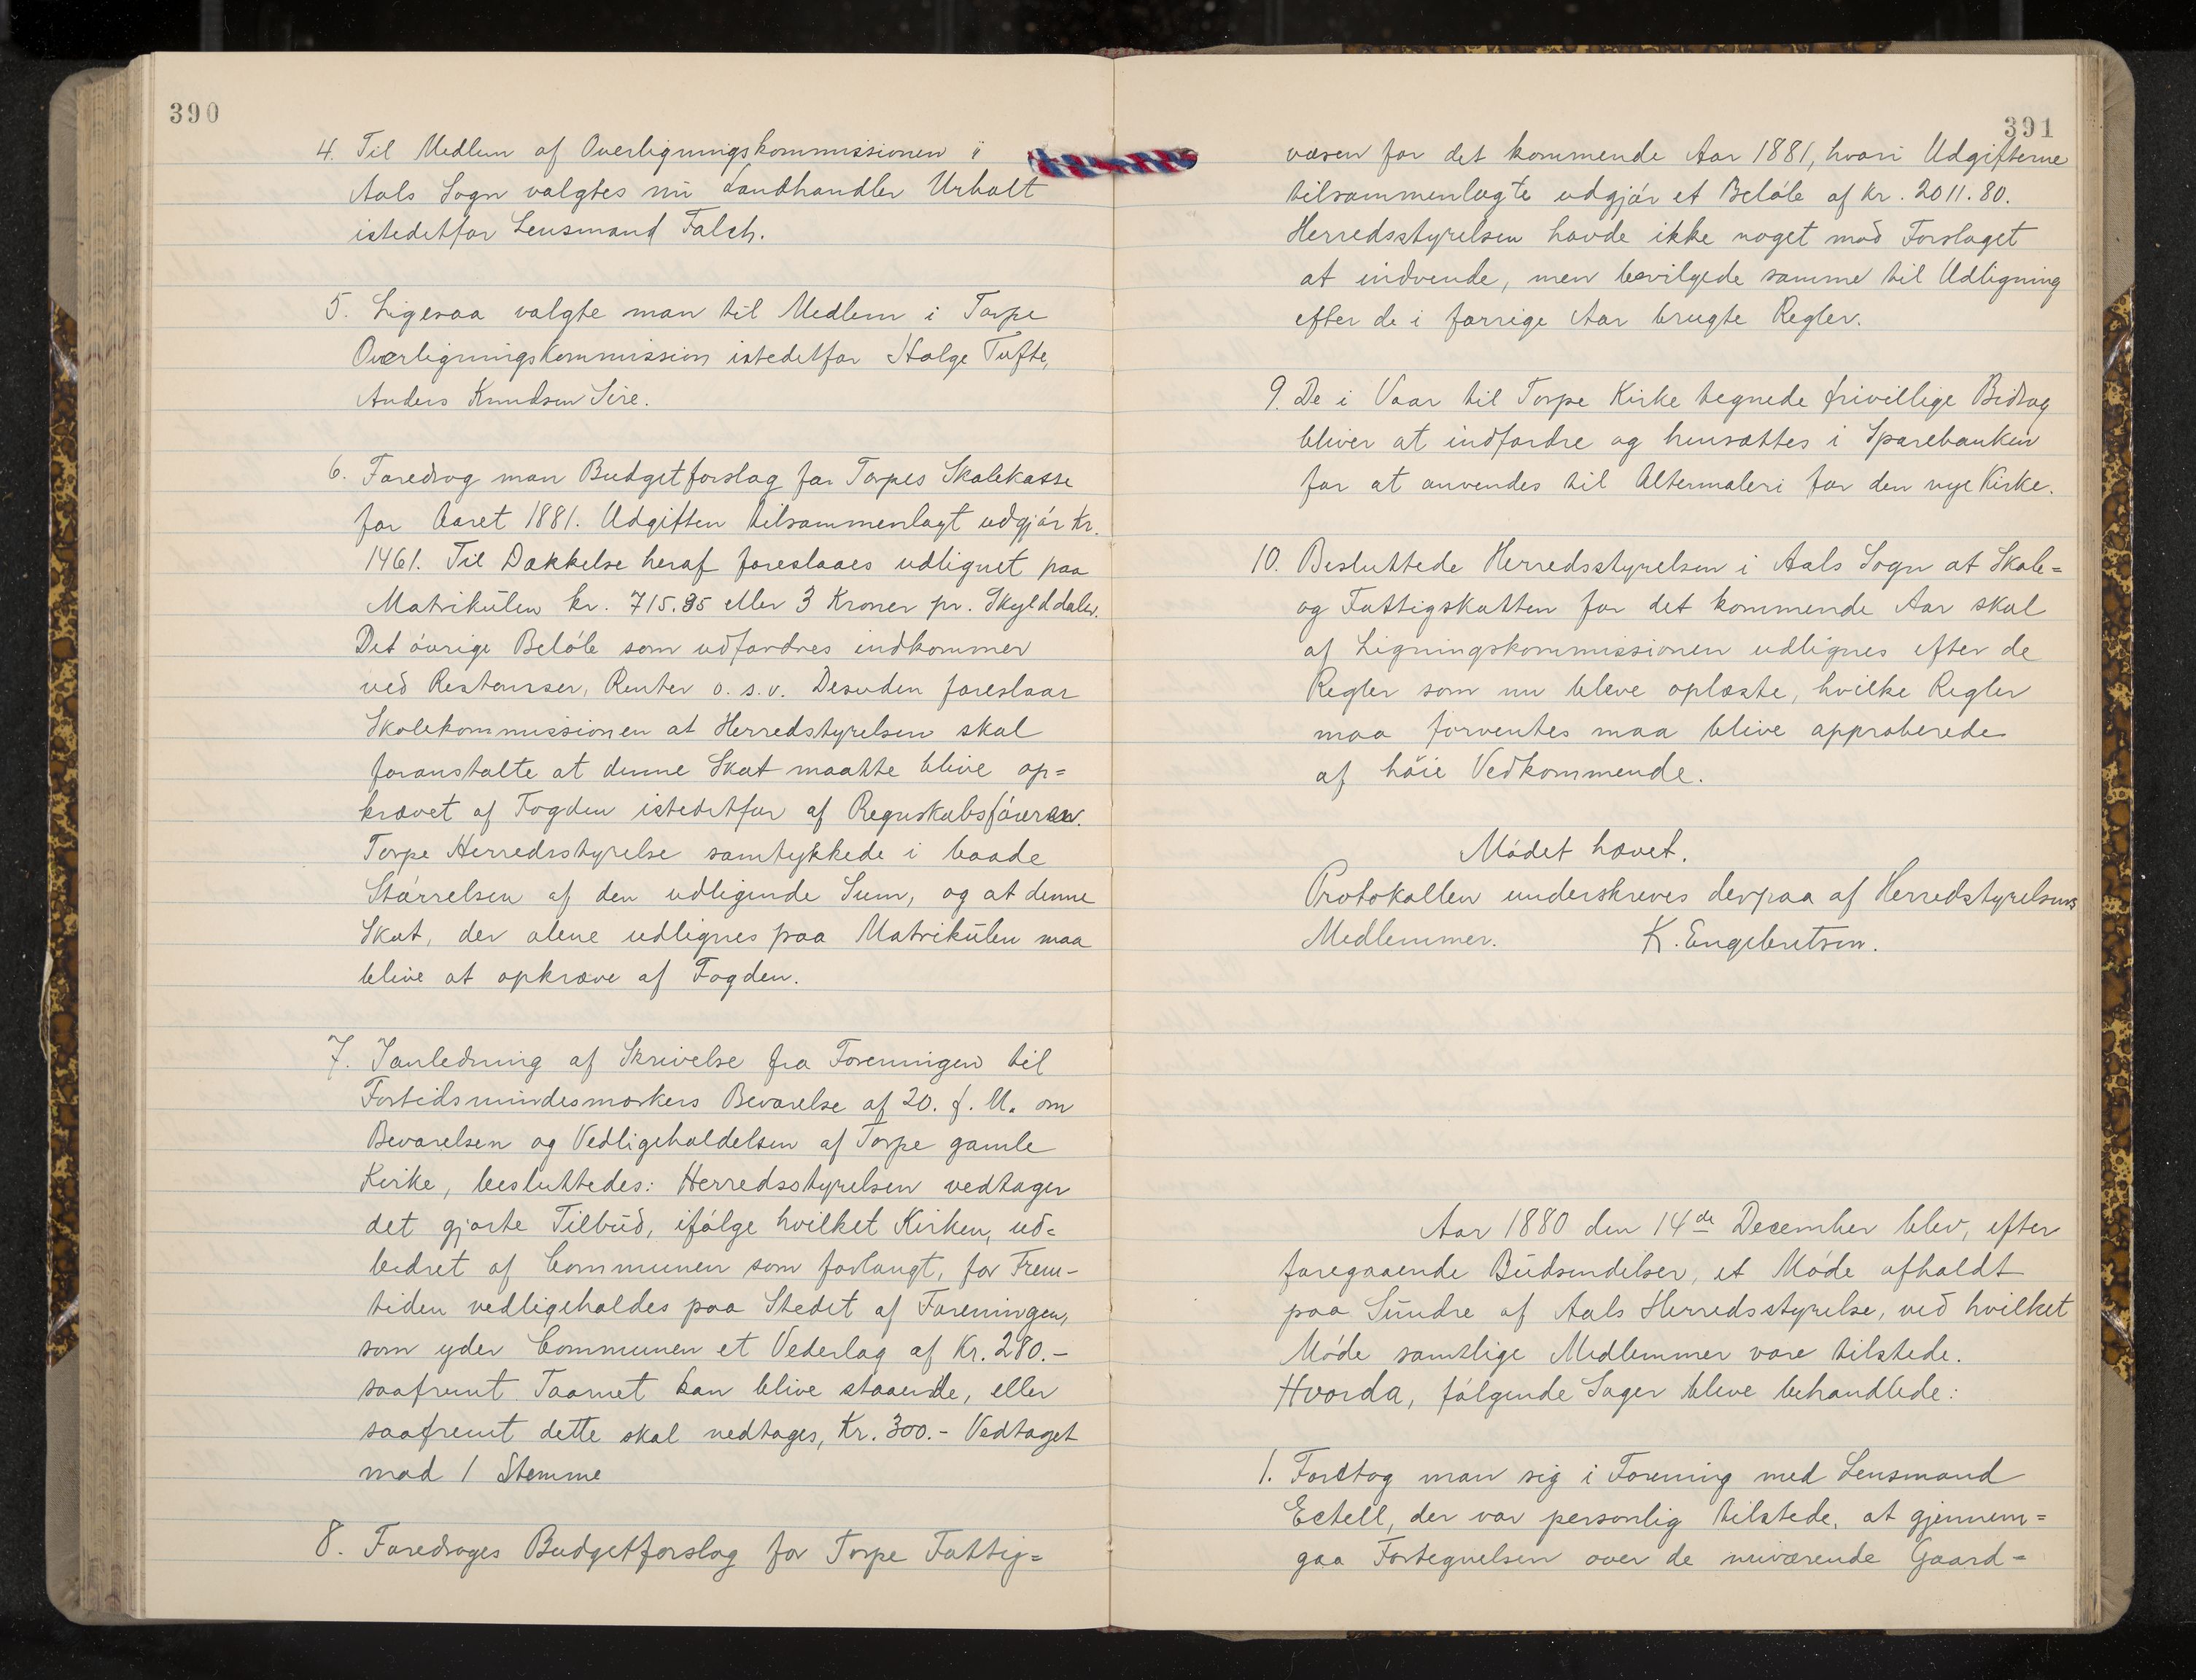 390
4. Til Medlem af Overligningskommissionen i
Aals Sogn valgtes nu Landhandler Urholt
istedetfor Lensmand Falch.
5. Ligesaa valgte man til Medlem i Torpe
Overligningskommission istedetfor Holge Tufte,
Anders Knudsen Sire.
6. Foredrog man Budgetforslag for Torpes Skolekasse
for Aaret 1881. Udgiften tilsammenlagt udgjór Kr.
1461. Til Dækkelse heraf foreslaaes udlignet paa
Matrikulen kr. 715.95 eller 3 Kroner pr. Skylddaler.
Det óvrige Belób som udfordres indkommer
ved Restanser, Renter o. s. v. Desuden foreslaar
Skolekommissionen at Herredstyrelsen skal
foranstalte at denne Skat maatte blive op=
krævet af Fogden istedetfor af Regnskabsfóreren.
Torpe Herredsstyrelse samtykkede i baade
Stórrelsen af den udligende Sum, og at denne
Skat, der alene udlignes paa Matrikulen maa
blive at opkræve af Fogden.
7. Ianledning af Skrivelse fra Foreningen til
Fortidsmindesmærkers Bevarelse af 20. f. M. om
Bevarelsen og Vedligeholdelsen af Torpe gamle
Kirke, besluttedes: Herredsstyrelsen vedtager
det gjorte Tilbud, ifólge hvilket Kirken, ud=
bedret af Communen som forlangt, for Frem-
tiden vedligeholdes paa Stedet af Foreningen,
som yder Communen et Vederlag af Kr. 280.-
saafremt Taarnet kan blive staaende, eller
saafremt dette skal nedtages, Kr. 300.- Vedtaget
mod 1 Stemme
8. Foredroges Budgetforslag for Torpe Fattig=
391
væsen for det kommende Aar 1881, hvori Udgifterne
tilsammenlagte udgjór et Belób af Kr. 2011.80.
Herredsstyrelsen havde ikke noget mod Forslaget
at indvende, men bevilgede samme til Udligning
efter de i forrige Aar brugte Regler.
9. De i Vaar til Torpe Kirke tegnede frivillige Bidrag
bliver at indfordre og hensættes i Sparebanken
for at anvendes til Altermaleri for den nye Kirke.
10. Besluttede Herredsstyrelsen i Aals Sogn at Skole=
og Fattigskatten for det kommende Aar skal
af Ligningskommissionen udlignes efter de
Regler som nu bleve oplæste, hvilke Regler
maa forventes maa blive approberede
af hóie Vedkommende.
Módet hævet.
Protokollen underskreves derpaa af Herredstyrelsens
Medlemmer. K. Engebretsen.
Aar 1880 den 14de December blev, efter
foregaaende Budsendelser, et Móde afholdt
paa Sundre af Aals Herredsstyrelse, ved hvilket
Móde samtlige Medlemmer vare tilstede.
Hvorda, fólgende Sager bleve behandlede:
1. Foretog man sig i Forening med Lensmand
Estell, der var personlig tilstede, at gjennem=
gaa Fortegnelsen over de nuværende Gaard=